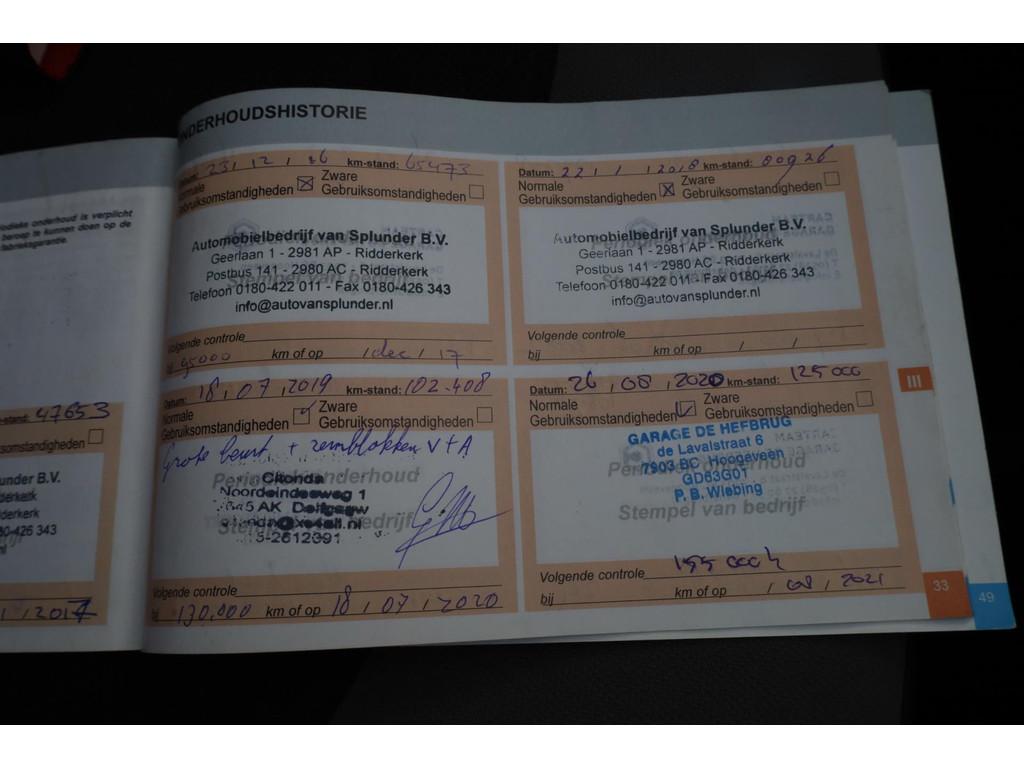 odieke onderhoud is verplicht
beroep te kunnen doen op de
abrieksgarantie.
47653
somstandigheden
der B.V.
dderkerk
dderkerk
80-426 343
nl
/ 2017
ONDERHOUDSHISTORIE
Datum: 23 / 12 / 16 km-stand: 65473
Normale
Gebruiksomstandigheden
Zware
Gebruiksomstandigheden
Automobielbedrijf van Splunder B.V.
Geerlaan 1 - 2981 AP - Ridderkerk
Postbus 141 - 2980 AC - Ridderkerk
Telefoon 0180-422 011 - Fax 0180-426 343
info@autovansplunder.nl
Stempel van bedrijf
Volgende controle
bij 95000 km of op / dec / 17
Datum: 22 / 1 / 2018 km-stand: 80926
Normale
Gebruiksomstandigheden
Zware
Gebruiksomstandigheden
Automobielbedrijf van Splunder B.V.
Geerlaan 1 - 2981 AP - Ridderkerk
Postbus 141 - 2980 AC - Ridderkerk
Telefoon 0180-422 011 - Fax 0180-426 343
info@autovansplunder.nl
Volgende controle
bij km of op / /
Datum: 18 / 07 / 2019 km-stand: 102.408
Normale
Gebruiksomstandigheden
Zware
Gebruiksomstandigheden
Grote beurt + remblokken V+A
Periodiek onderhoud
Citonda
Noordeindseweg 1
AK Delfgauw
@xs4all.nl
5-2612391
Stempel van bedrijf
Volgende controle
bij 130.000 km of op 18 / 07 / 2020
Datum: 26 / 08 / 2020 km-stand: 125 000
Normale
Gebruiksomstandigheden
Zware
Gebruiksomstandigheden
GARAGE DE HEFBRUG
de Lavalstraat 6
7903 BC Hoogeveen
GD63G01
P. B. Wiebing
Periodiek onderhoud
Stempel van bedrijf
Volgende controle 155 000
bij km of op / 08 / 2021
III
33
49